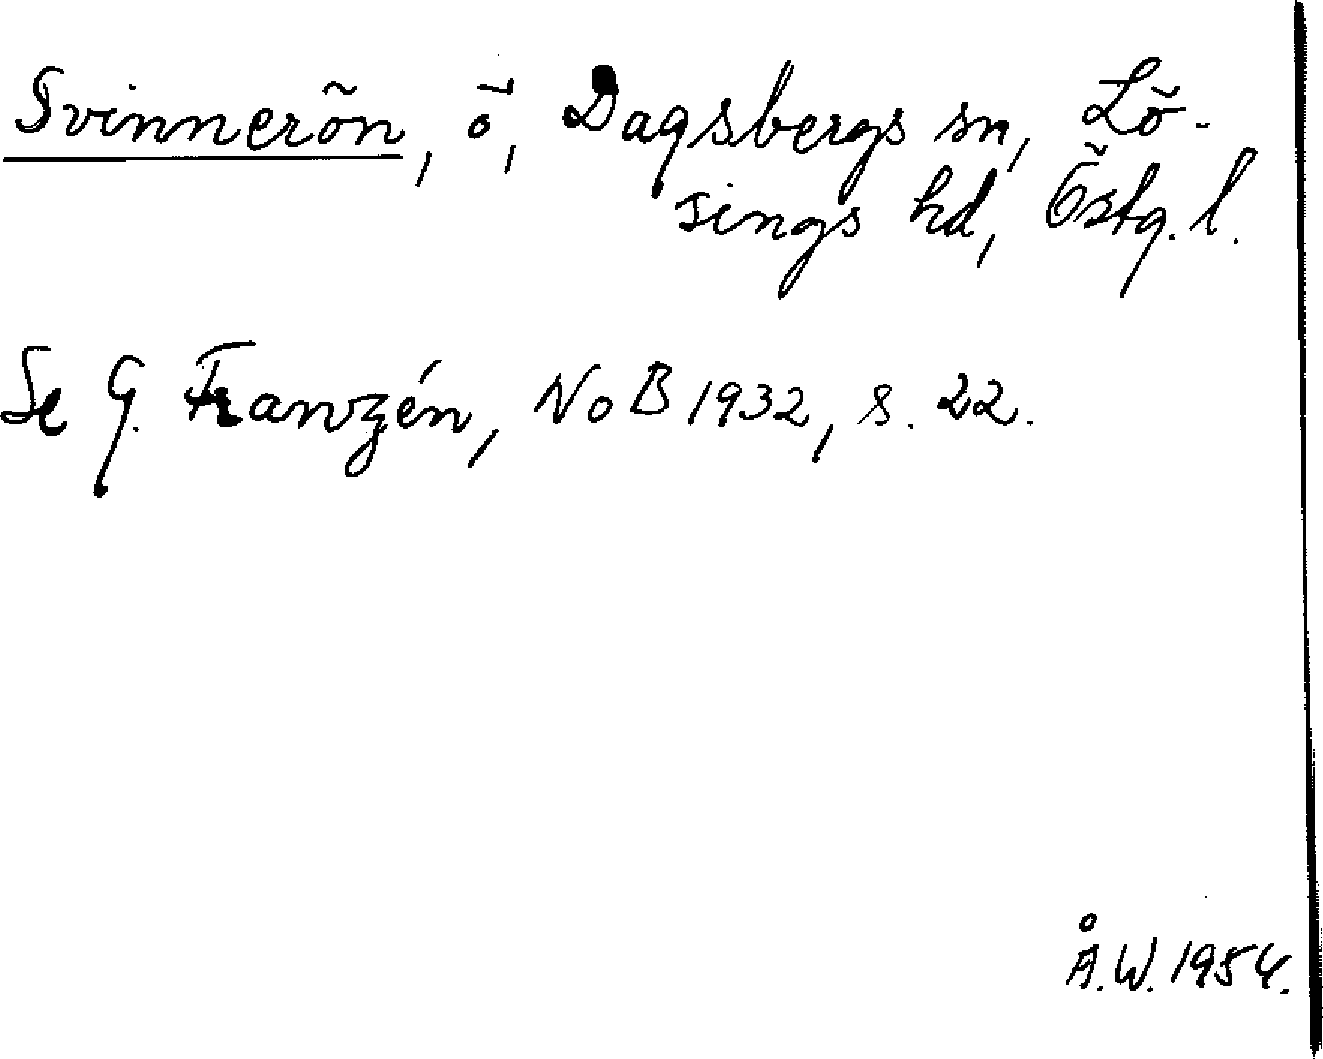 Svinnerön, ö, Dagsbergs sn, Lö-
sings hd, Östg. l.
Se G. Franzén, NoB 1932, s. 22.
Å.W. 1954.